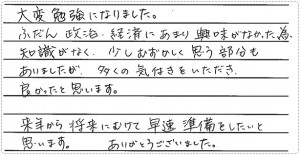 大変勉強になりました。
ふだん政治・経済にあまり興味がなかった為、
知識がなく、少しむずかしく思う部分も
ありましたが、多くの気付きをいただき、
良かったと思います。
来年から将来にむけて早速準備をしたいと
思います。　ありがとうございました。